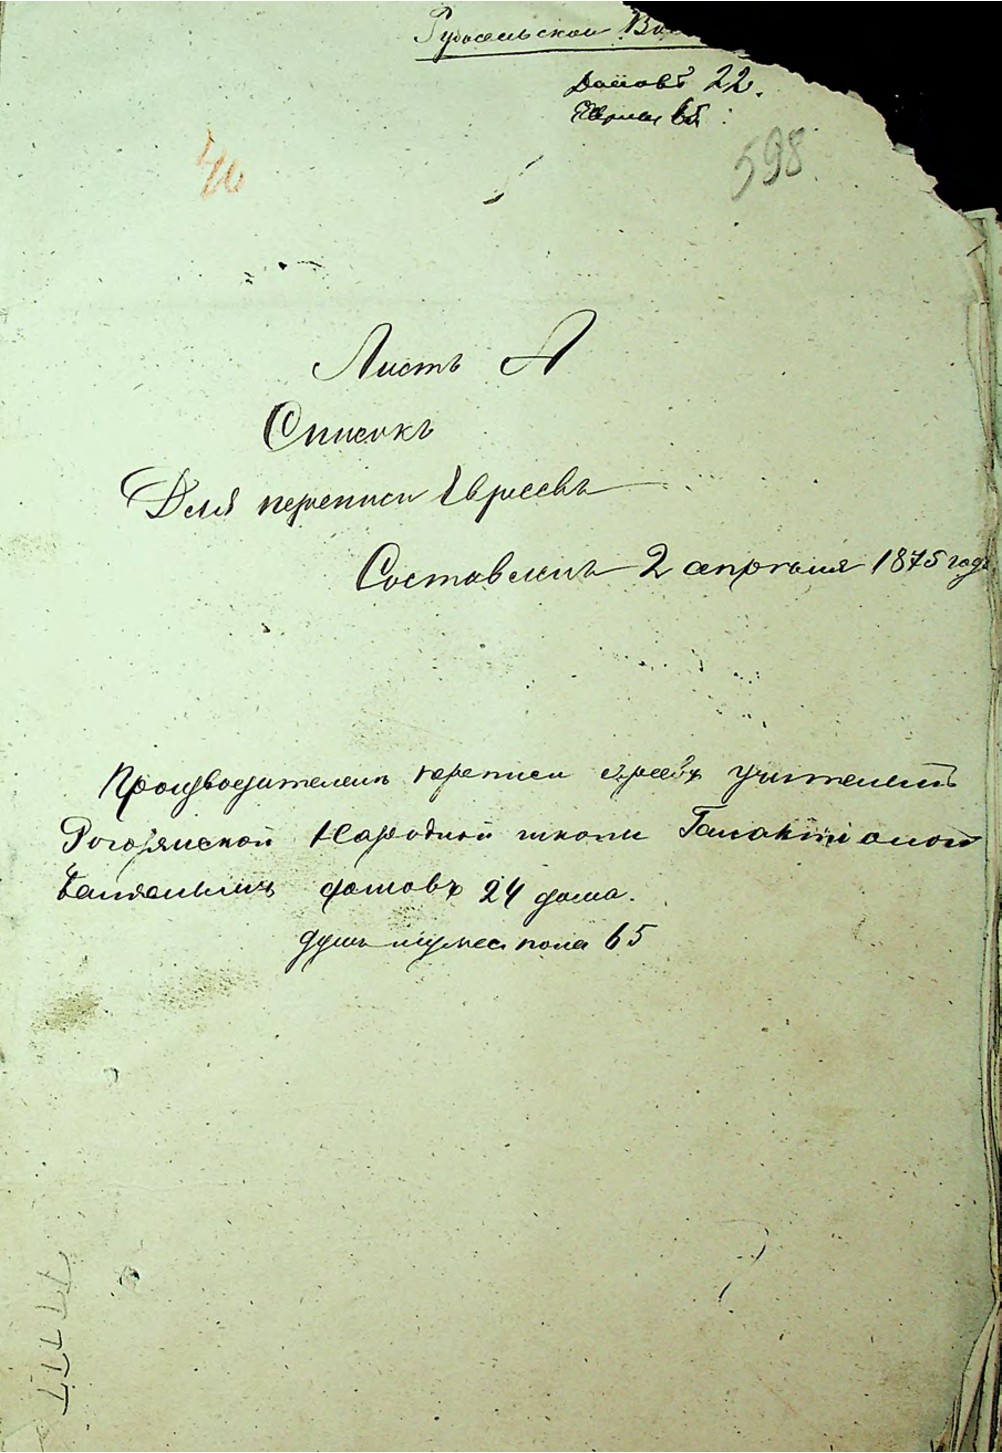 Рубосельской Во
Домовъ 22.
Евреи 65
598
Листъ А
Списокъ
Для переписи Евреевъ
Составленъ 2 апрѣля 1875 года
Производителемъ переписи евреевъ учителемъ
Народной школы
домовъ 24 дома.
душъ мужес пола 65